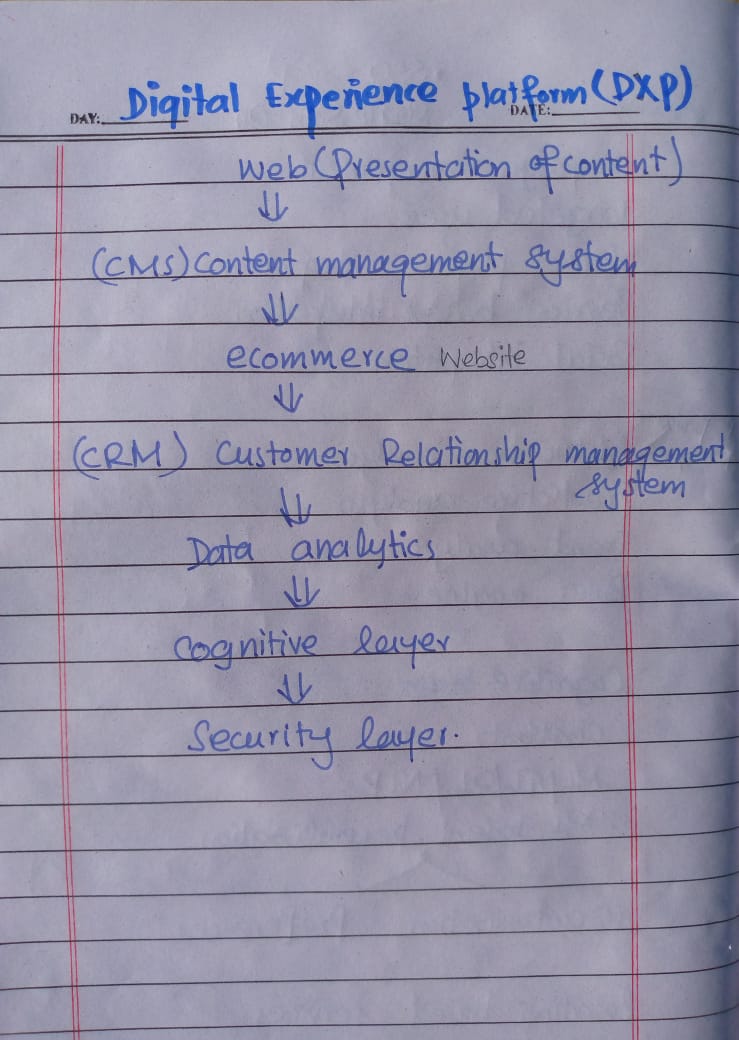 Digital Experience platform (DXP)
DAY: DATE:
Web (Presentation of content)
⇓
(CMS) Content management system
⇓
ecommerce Website
⇓
(CRM) Customer Relationship management
system
⇓
Data analytics
⇓
Cognitive layer
⇓
Security layer.